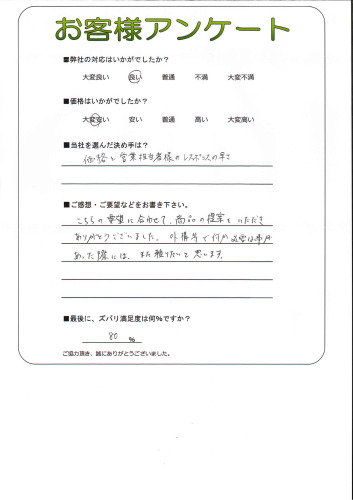 お客様アンケート
■弊社の対応はいかがでしたか?
大変良い 良い 普通 不満 大変不満
■価格はいかがでしたか?
大変安い 安い 普通 高い 大変高い
■当社を選んだ決め手は?
価格と営業担当者様のレスポンスの早さ
■ご感想・ご要望などをお書き下さい。
こちらの要望に合わせて、商品の提案をいただき
ありがとうございました。外構等で何か必要な事が
あった際には、また頼りたいと思います。
■最後に、ズバリ満足度は何%ですか?
80 %
ご協力頂き、誠にありがとうございました。